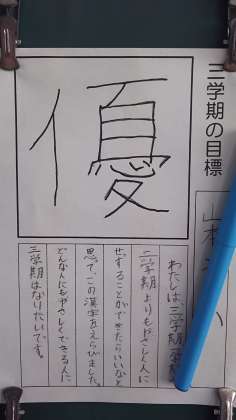 三学期の目標
優
山本
わたしは、三学期
二学期よりもやさしく人に
せっすることができたらいいなと
思って、この漢字をえらびました。
どんな人にもやさしくできる人に
三学期はなりたいです。